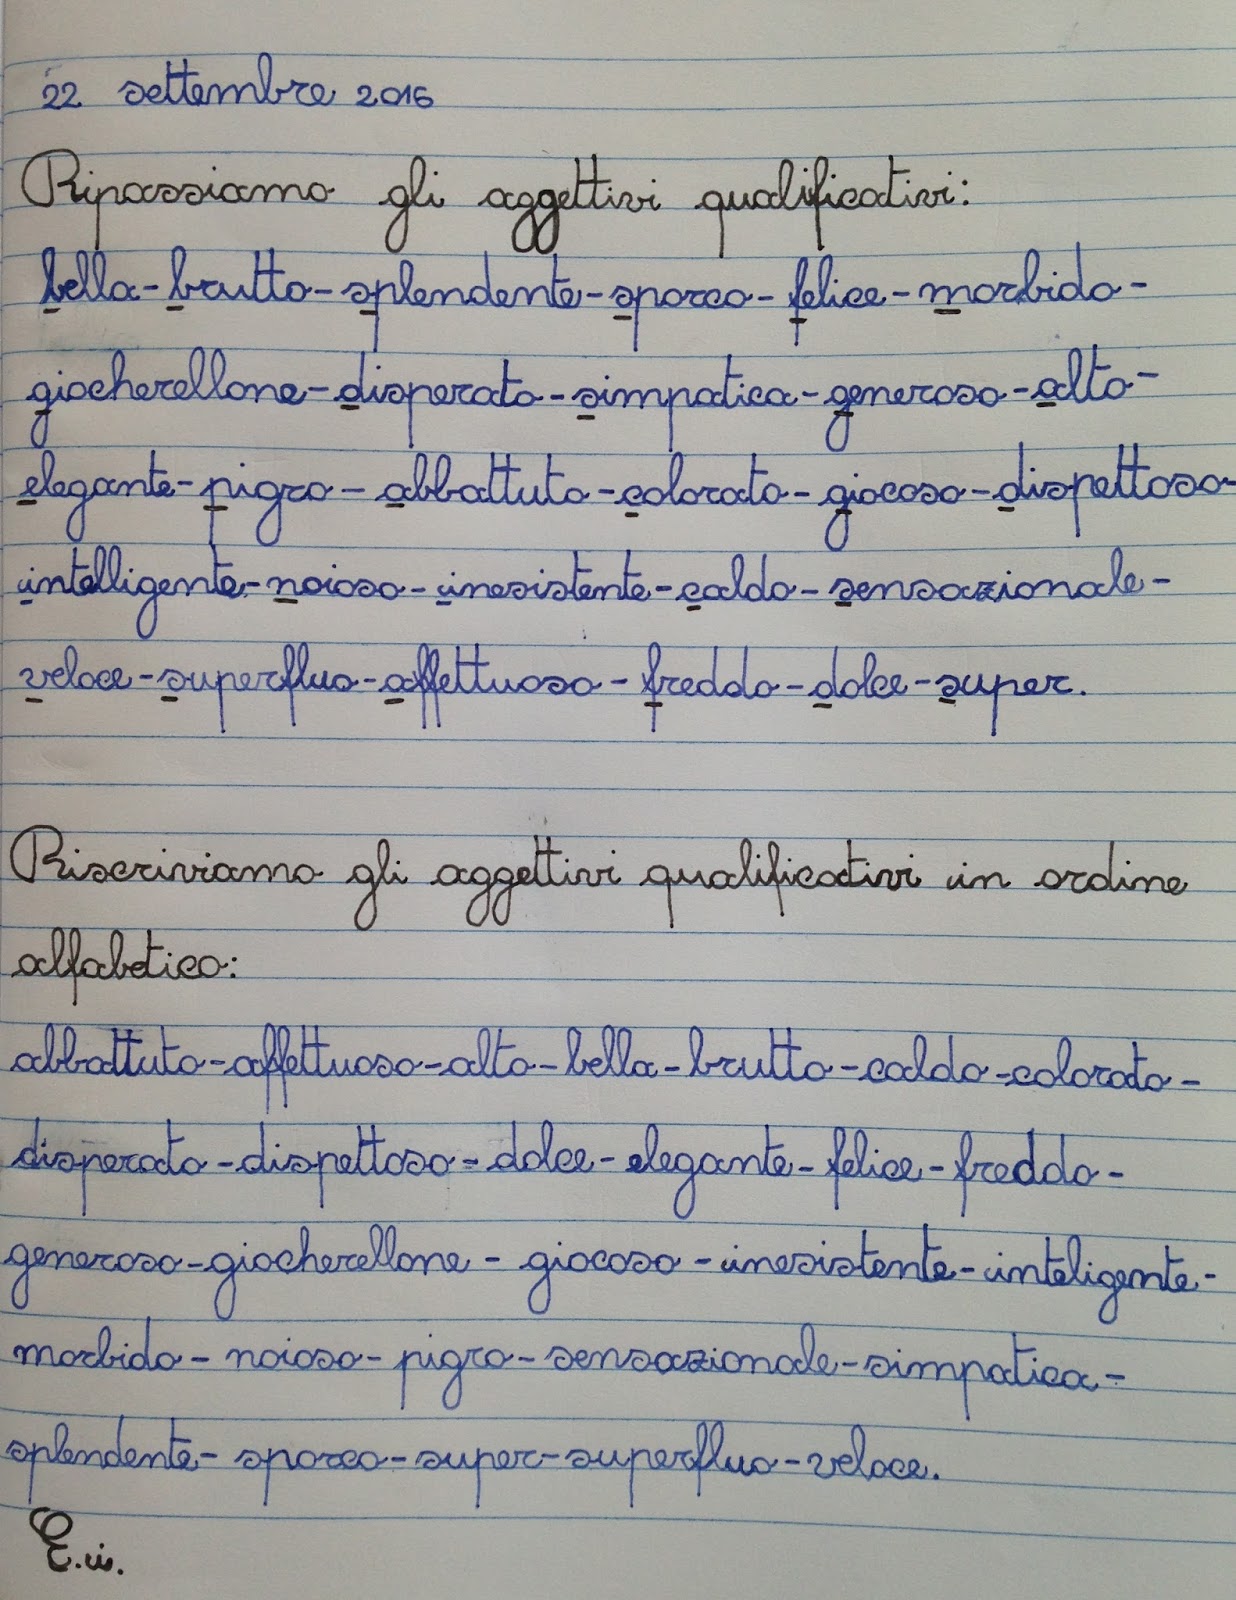 22 settembre 2016
Ripassiamo gli aggettivi qualificativi:
bella - brutto - splendente - sporco - felice - morbido -
giocherellone - disperato - simpatica - generoso - alto -
elegante - pigro - abbattuto - colorato - giocoso - dispettoso -
intelligente - noioso - inesistente - caldo - sensazionale -
veloce - superfluo - affettuoso - freddo - dolce - super.
Riscriviamo gli aggettivi qualificativi in ordine
alfabetico:
abbattuto - affettuoso - alto - bella - brutto - caldo - colorato -
disperato - dispettoso - dolce - elegante - felice - freddo -
generoso - giocherellone - giocoso - inesistente - inteligente -
morbido - noioso - pigro - sensazionale - simpatica -
splendente - sporco - super - superfluo - veloce.
E.i.